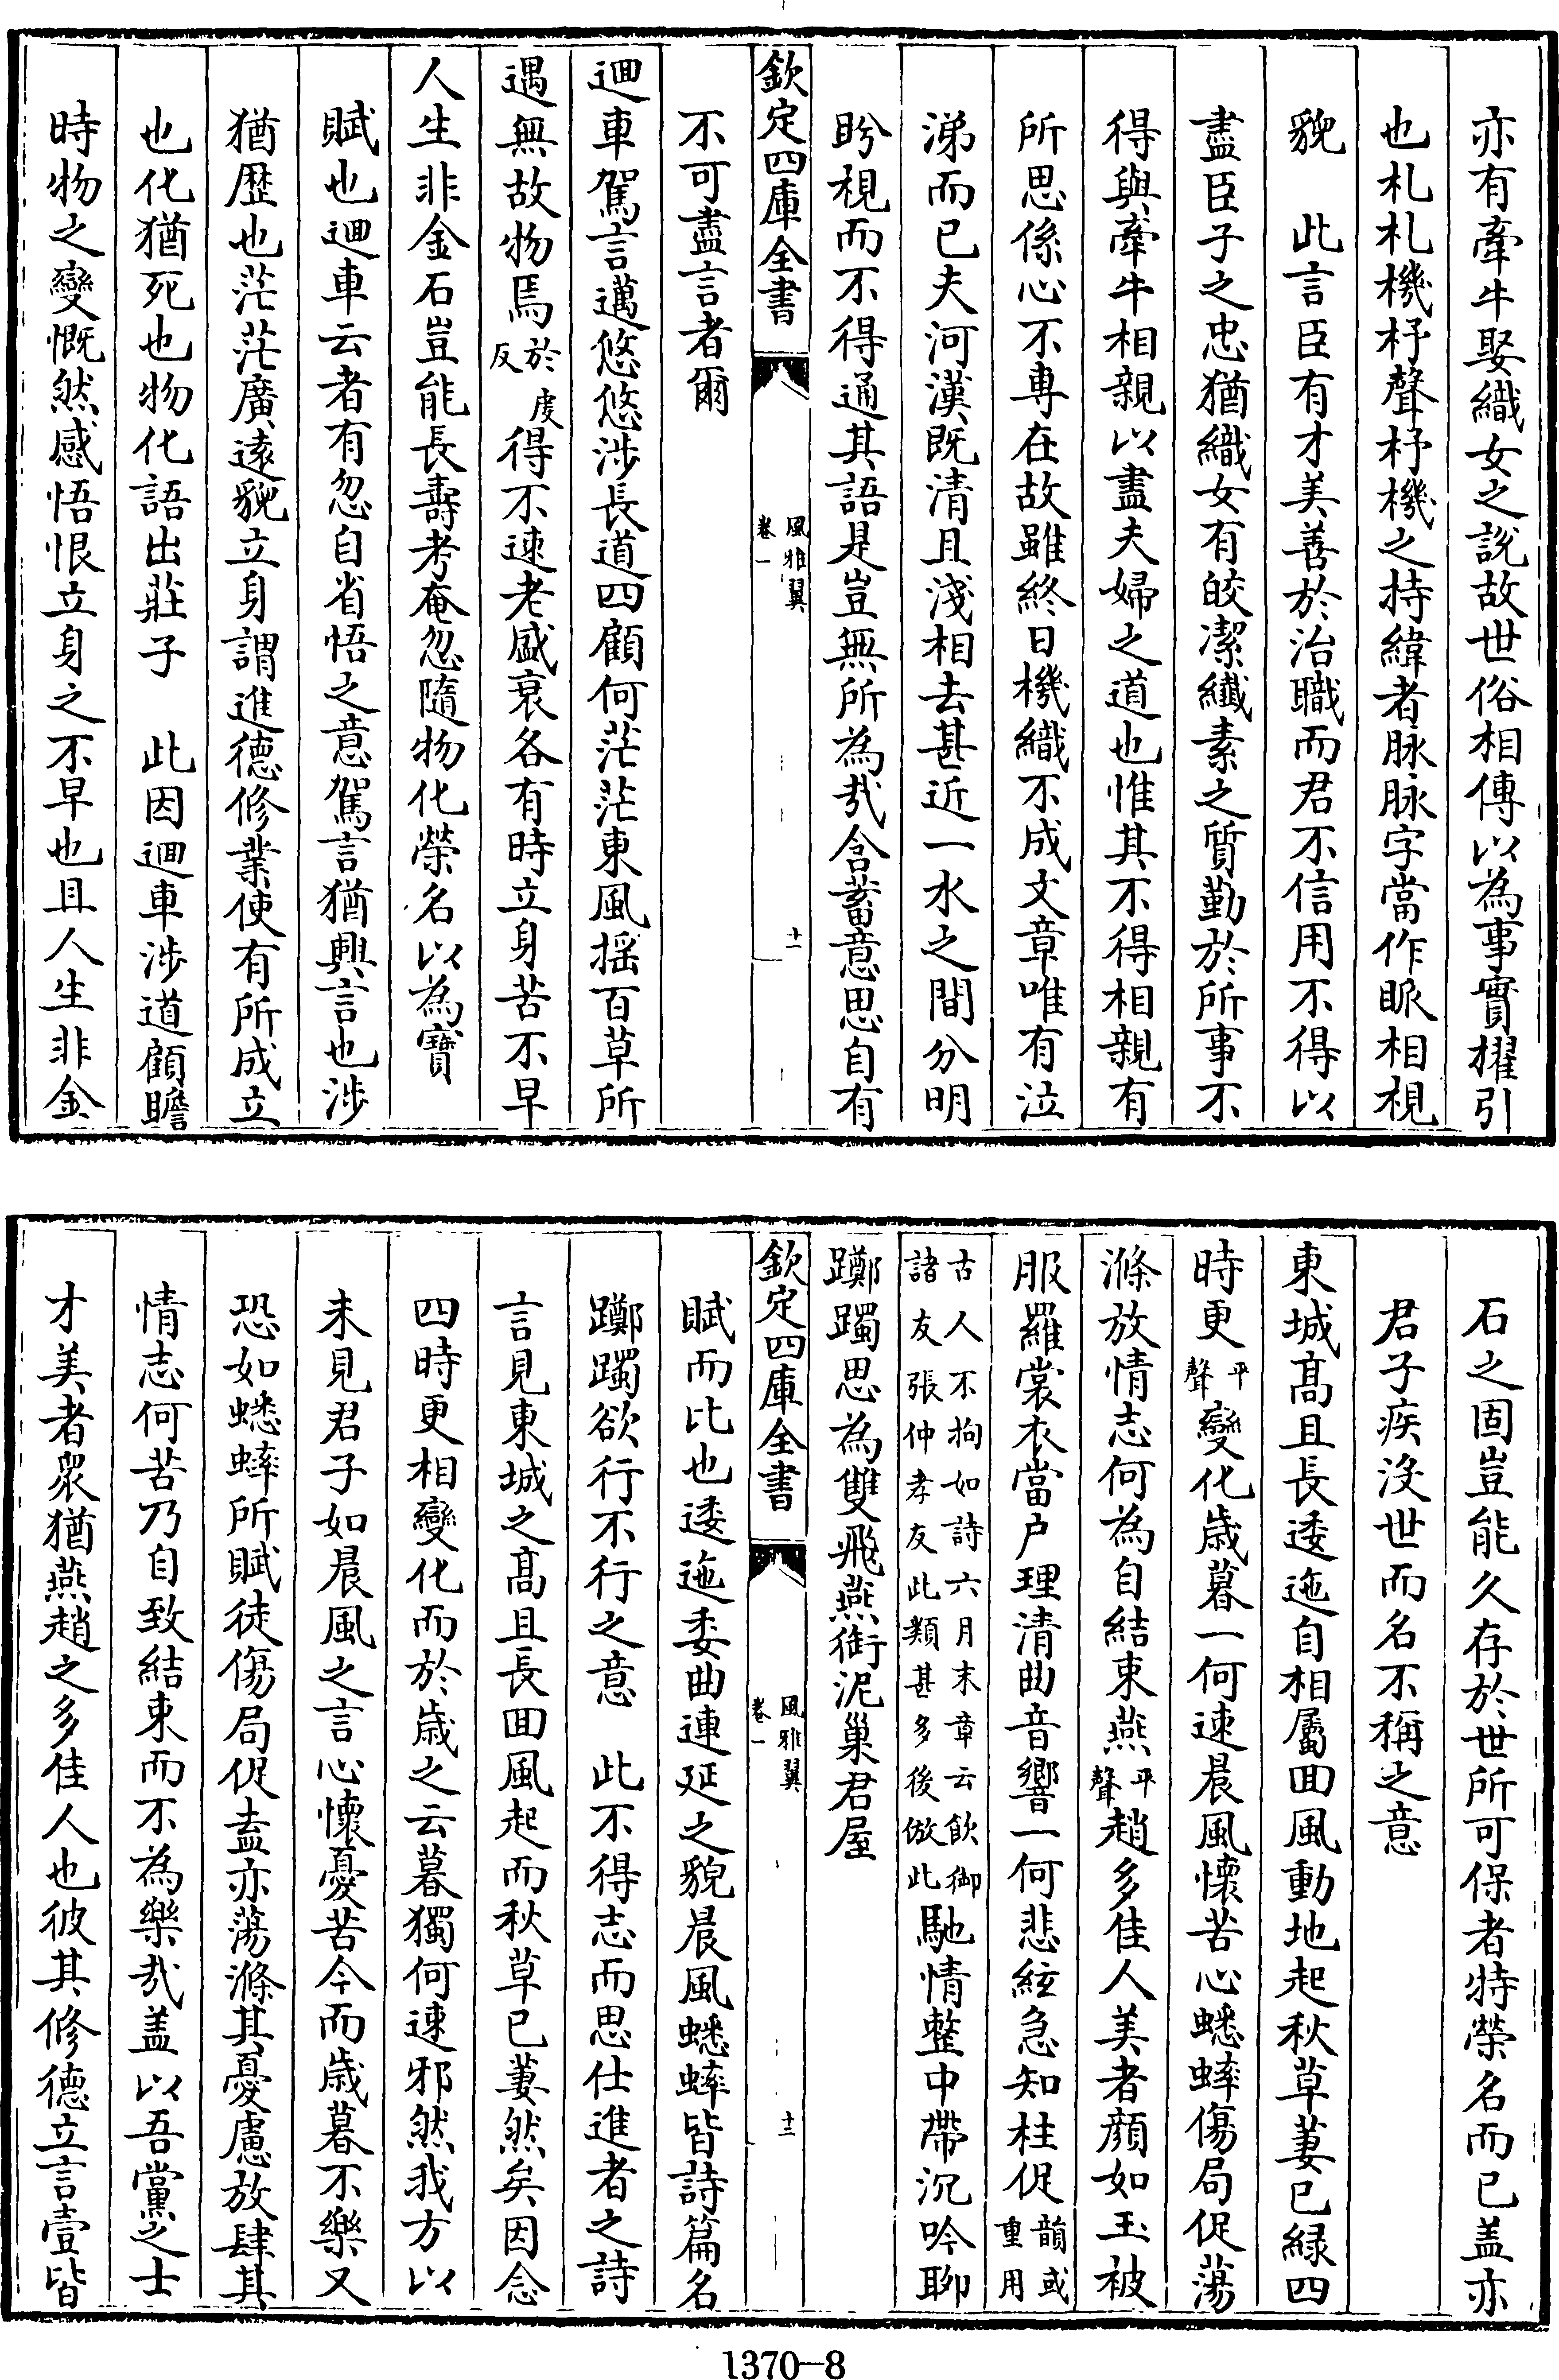 亦有牽牛娶織女之說故世俗相傳以為事實擢引
也札札機杼聲杼機之持緯者脉脉字當作眽相視
貌　此言臣有才美善於治職而君不信用不得以
盡臣子之忠猶織女有皎潔纖素之質勤於所事不
得與牽牛相親以盡夫婦之道也惟其不得相親有
所思係心不專在故雖終日機織不成文章唯有泣
涕而已夫河漢既清且淺相去甚近一水之間分明
盻視而不得通其語是豈無所為哉含蓄意思自有
欽定四庫全書
風雅翼
卷一
十一
不可盡言者爾
迴車駕言邁悠悠涉長道四顧何茫茫東風揺百草所
遇無故物焉於虔反得不速老盛衰各有時立身苦不早
人生非金石豈能長壽考奄忽隨物化榮名以為寶
賦也迴車云者有忽自省悟之意駕言猶興言也涉
猶歷也茫茫廣遠貌立身謂進德修業使有所成立
也化猶死也物化語出莊子　此因迴車涉道顧瞻
時物之變慨然感悟恨立身之不早也且人生非金
石之固豈能久存於世所可保者特榮名而已盖亦
君子疾沒世而名不稱之意
東城髙且長逶迤自相屬回風動地起秋草萋已緑四
時更平聲變化歲暮一何速晨風懷苦心蟋蟀傷局促蕩
滌放情志何為自結束燕平聲趙多佳人美者顔如玉被
服羅裳衣當户理清曲音響一何悲絃急知柱促韻或重用
古人不拘如詩六月末章云飲御
諸友張仲孝友此類甚多後倣此馳情整中帶沉吟聊
躑躅思為雙飛燕銜泥巢君屋
欽定四庫全書
風雅翼
卷一
十二
賦而比也逶迤委曲連延之貌晨風蟋蟀皆詩篇名
躑躅欲行不行之意　此不得志而思仕進者之詩
言見東城之髙且長回風起而秋草已萋然矣因念
四時更相變化而於歲之云暮獨何速邪然我方以
未見君子如晨風之言心懷憂苦今而歲暮不樂又
恐如蟋蟀所賦徒傷局促盍亦蕩滌其憂慮放肆其
情志何苦乃自致結束而不為樂哉盖以吾黨之士
才美者衆猶燕趙之多佳人也彼其修德立言壹皆
1370-8